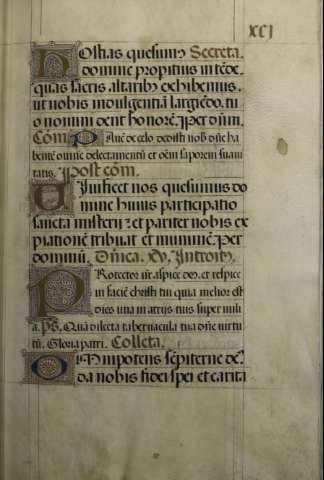 XCI
Ostias quesumꝰ Secreta.
domine propitius intēde.
quas sacris altaribꝰ exhibemus.
ut nobis indulgentiā largiēdo. tu
o nomini dent honorē. Per dn̄m.
Cōm̄. Panē de celo dedisti nob̄ dn̄e ha
bentē omne delectamentū et oēm saporem suaui
tatis. Post cōm̄.
Uiuificet nos quesumus do
mine huius participatio
sancta misterij: et pariter nobis ex
piationē tribuat et muniminē. Per
dominū. Dn̄ica. xv. Introitꝰ.
Protector nr̄ aspice deꝰ. et respice
in faciē christi tui quia melior est
dies una in atrijs tuis super mili
a. Pꝰ. Quā dilecta tabernacula tua dn̄e uirtu
tū. Gloria patri. Colleta.
Omnipotens sēpiterne deꝰ
da nobis fidei spei et carita